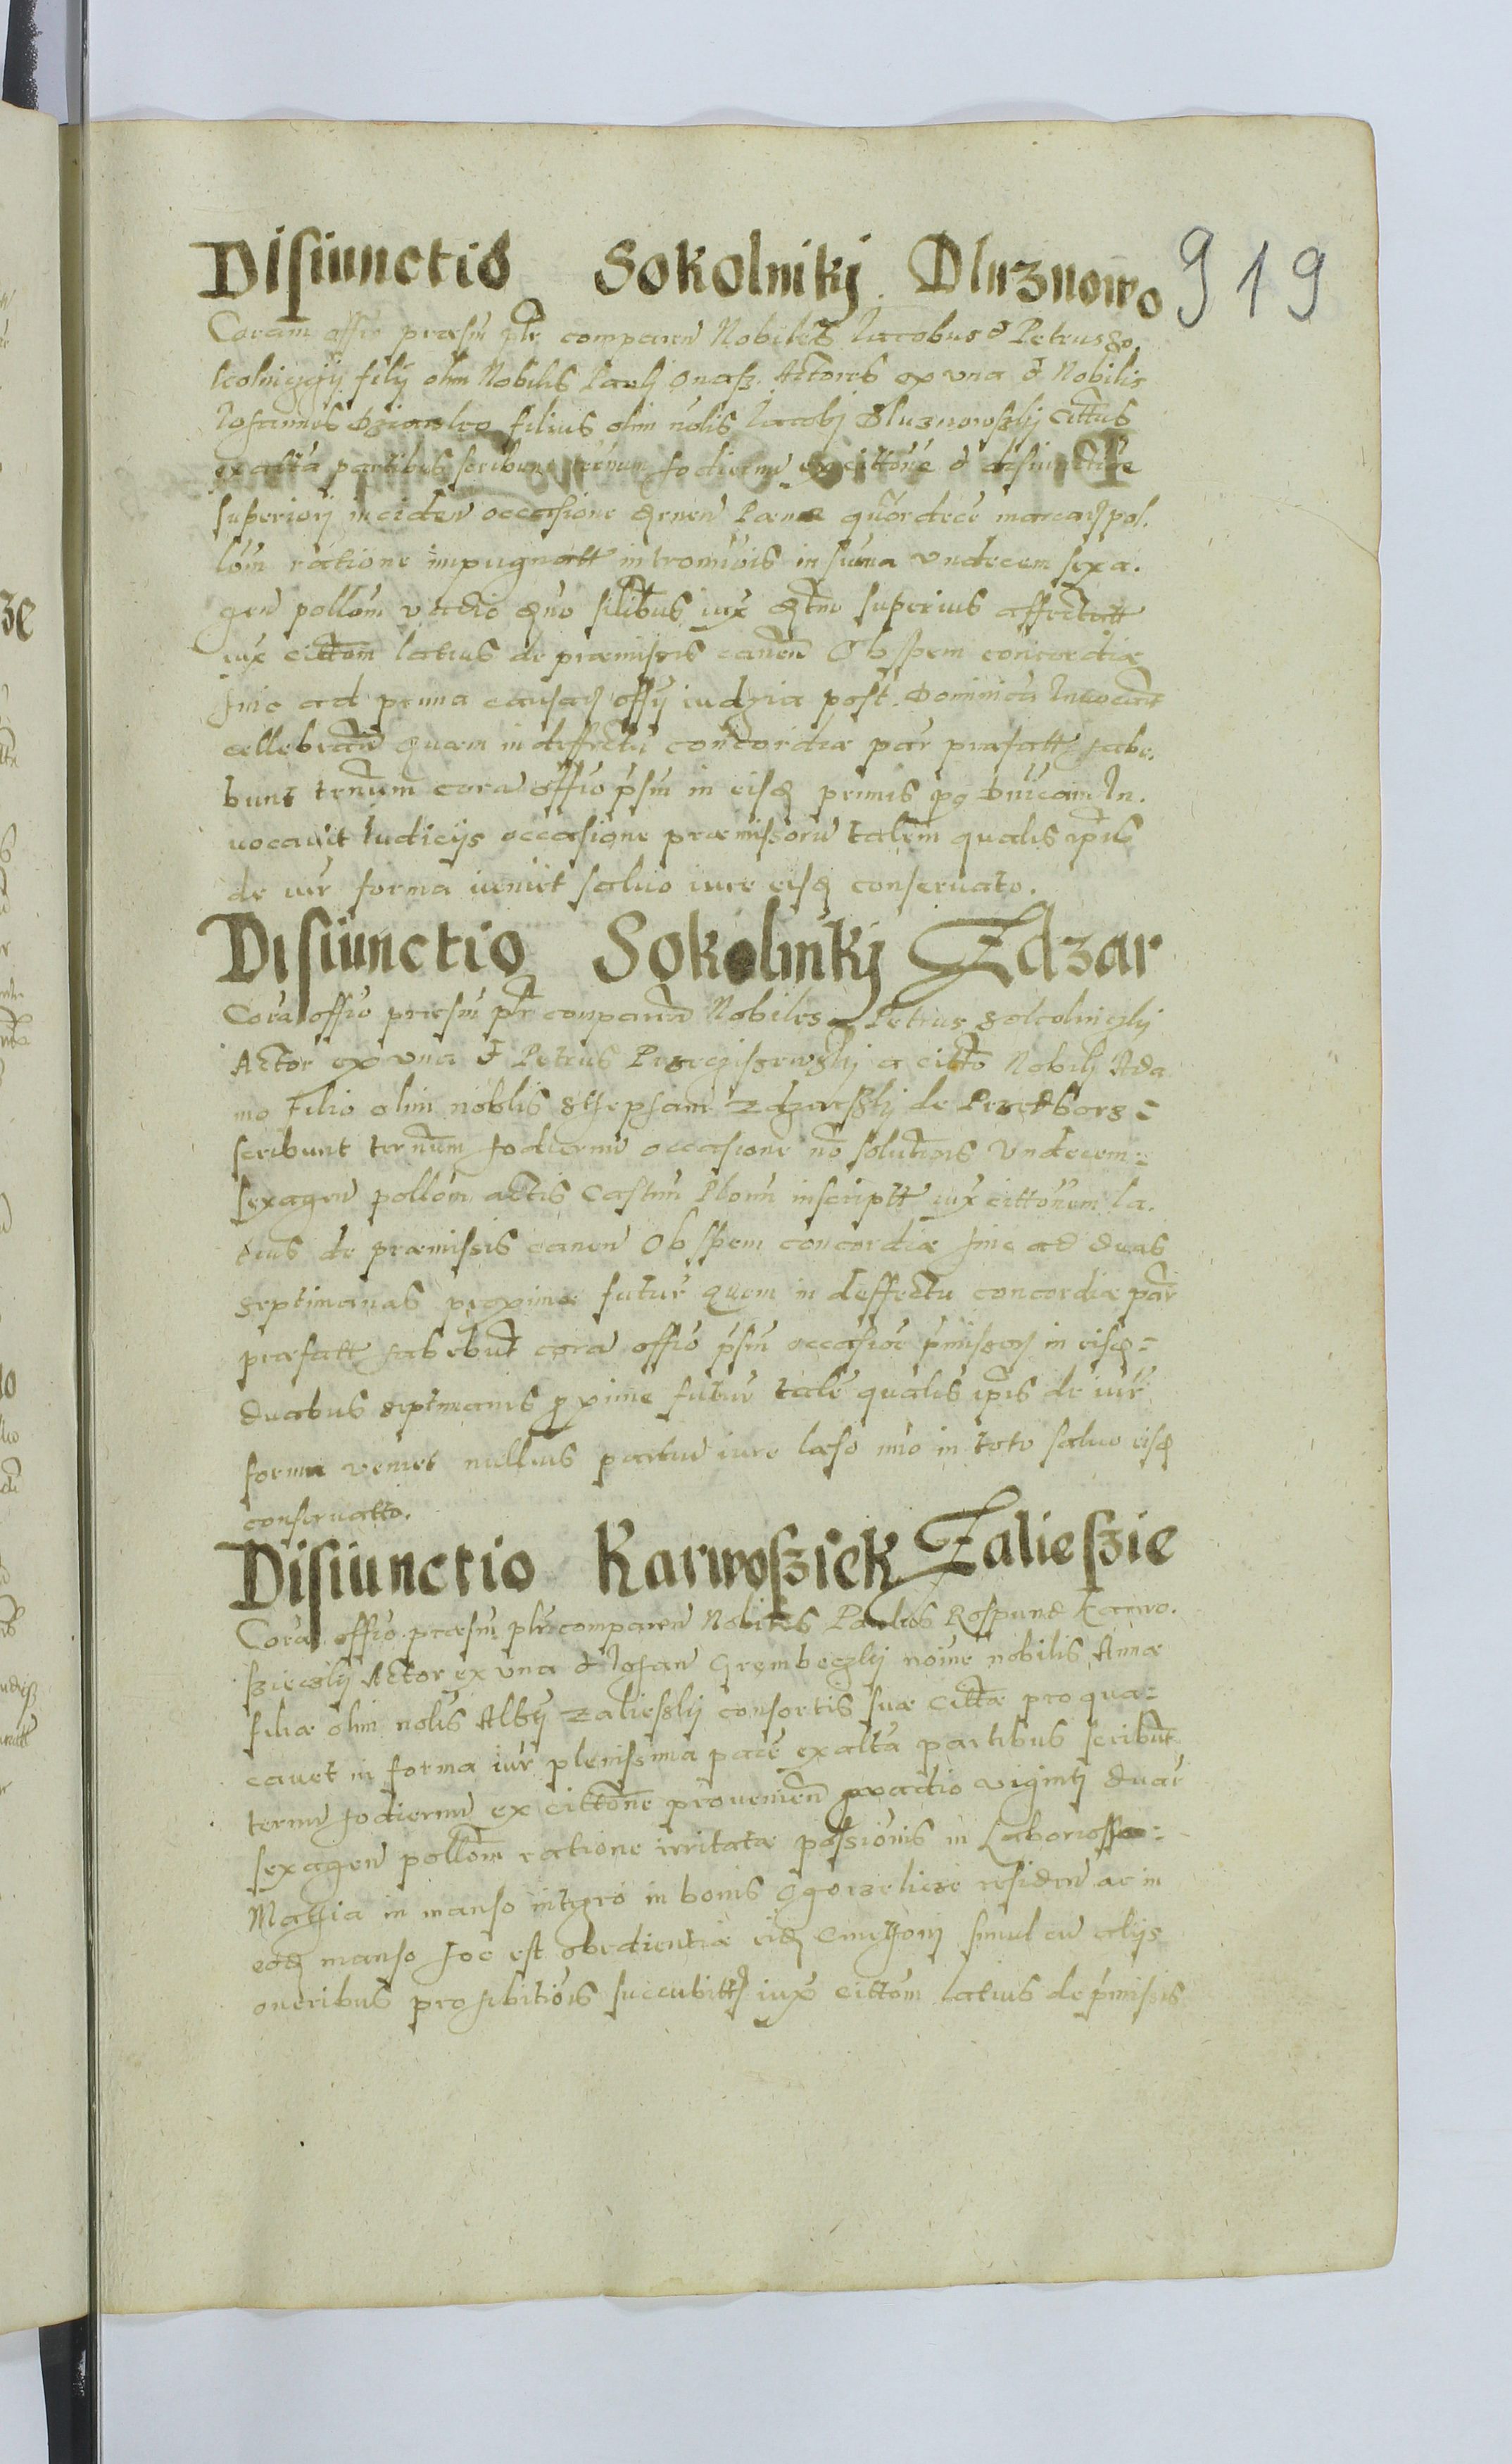 Disiunctio Sokolnikj Dluznowo 919
Coram offio præsin plr comparen Nobiles Iacobus et Petrus So.
kolniczij filij olim Nobilis Pauli Actores ex una et Nobilis
Johannes filius olim nolis Iacobi Dluznowskij Cittus
ex alta partibus scribunt termin hodiernu ex cittone et disiunctione
superiorj inciden occasione Pænæ quordece marcar pol.
lom ratione impugnatt intromiois in suma undecem sexa.
gen pollom vadio silibus iux superius affectatt
iux cittom latius de præmissis canen Ob spem concordiæ
hinc ad prima causar offij iudzia post Dominica Inuocauit
cellebran Quem in deffectu concordiæ par præfatt habe.
bunt trnum cora offio psin in eisd primis Dnicam In.
uocauit Iudicijs occasione præmissoru talem qualis ipis
de iur forma ueniet saluo iure eisd conseruato.
Disiunctio Sokolinkj Zdzar
Cora offio præsin plr comparen Nobiles Petrus Sokolniczkj
Actor ex una et Petrus a citto Nobilj Ada
mo Filio olim noblis Sthephani Zdzarskij de
scribunt ternum hodiernu occasione no solutionis Undecem=
sexagen pollom actis Castrin Plonn inscriptt iux cittonem la.
tius de præmissis canen Ob spem concordiæ hinc ad duas
septimanas proxime futur quem in deffectu concordiæ par
præfatt habebunt cora offio psin occasioe pmissor in eisd=
duabus septimanis proxime futur tale qualis ipis de iur
forma veniet nullius partiu iure læso imo in toto saluo eisd
conseruatto.
Disiunctio Karwosziek Zalieszie
Cora offio præsin plr comparen Nobiles Paulus Rospund Karwo.
sziecskij Actor ex una et Johan Grembeczkij noine nobilis Annæ
filiæ olim nolis Albtj Zalieskij consortis suæ Cittæ pro qua=
cauet in forma iur plenissima pace ex alta partibus scribunt
termin hodiernu ex cittone prouenien vadio viginti duar
sexagen pollom ratione irritatæ possionis in Laborioso=
Mathia in manso integro in bonis residen ac in
eod manso hoc est obedientiæ eid Cmethonj simul cu alijs
oneribus prohibitiois succubitt iux cittom latius de pmissis